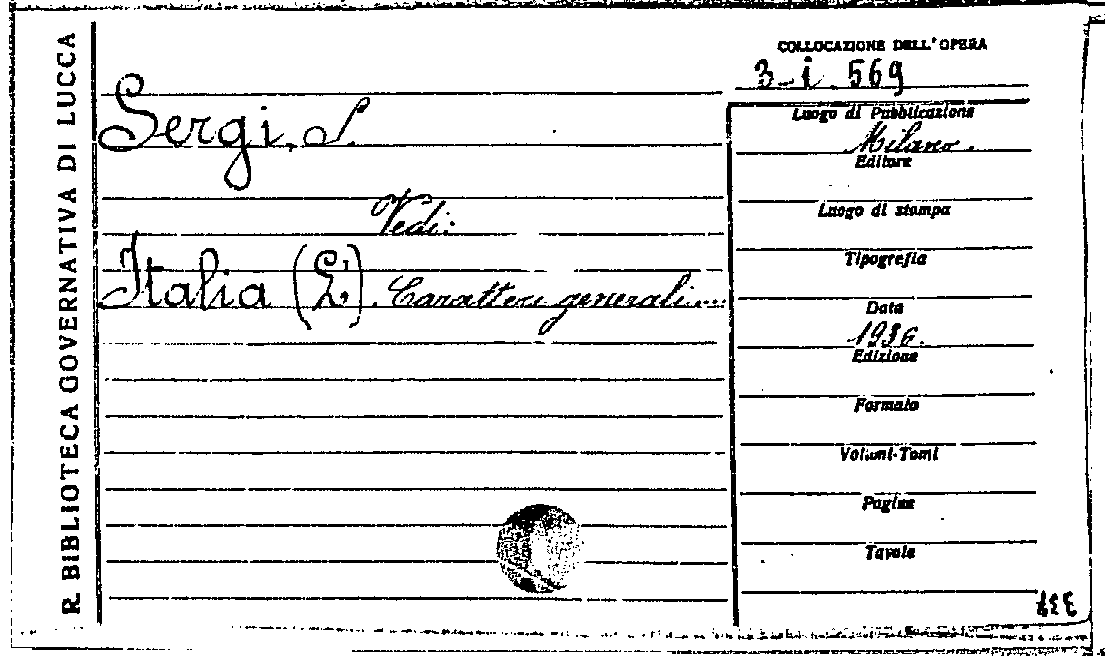 R. BIBLIOTECA GOVERNATIVA DI LUCCA
Sergi, S.
Vedi:
Italia (L'). Caratteri generali....
COLLOCAZIONE DELL'OPERA
3-i. 569
Luogo di Pubblicazione
Milano.
Editore
Luogo di stampa
Tipografia
Data
1936.
Edizione
Formato
Volumi-Tomi
Pagine
Tavole